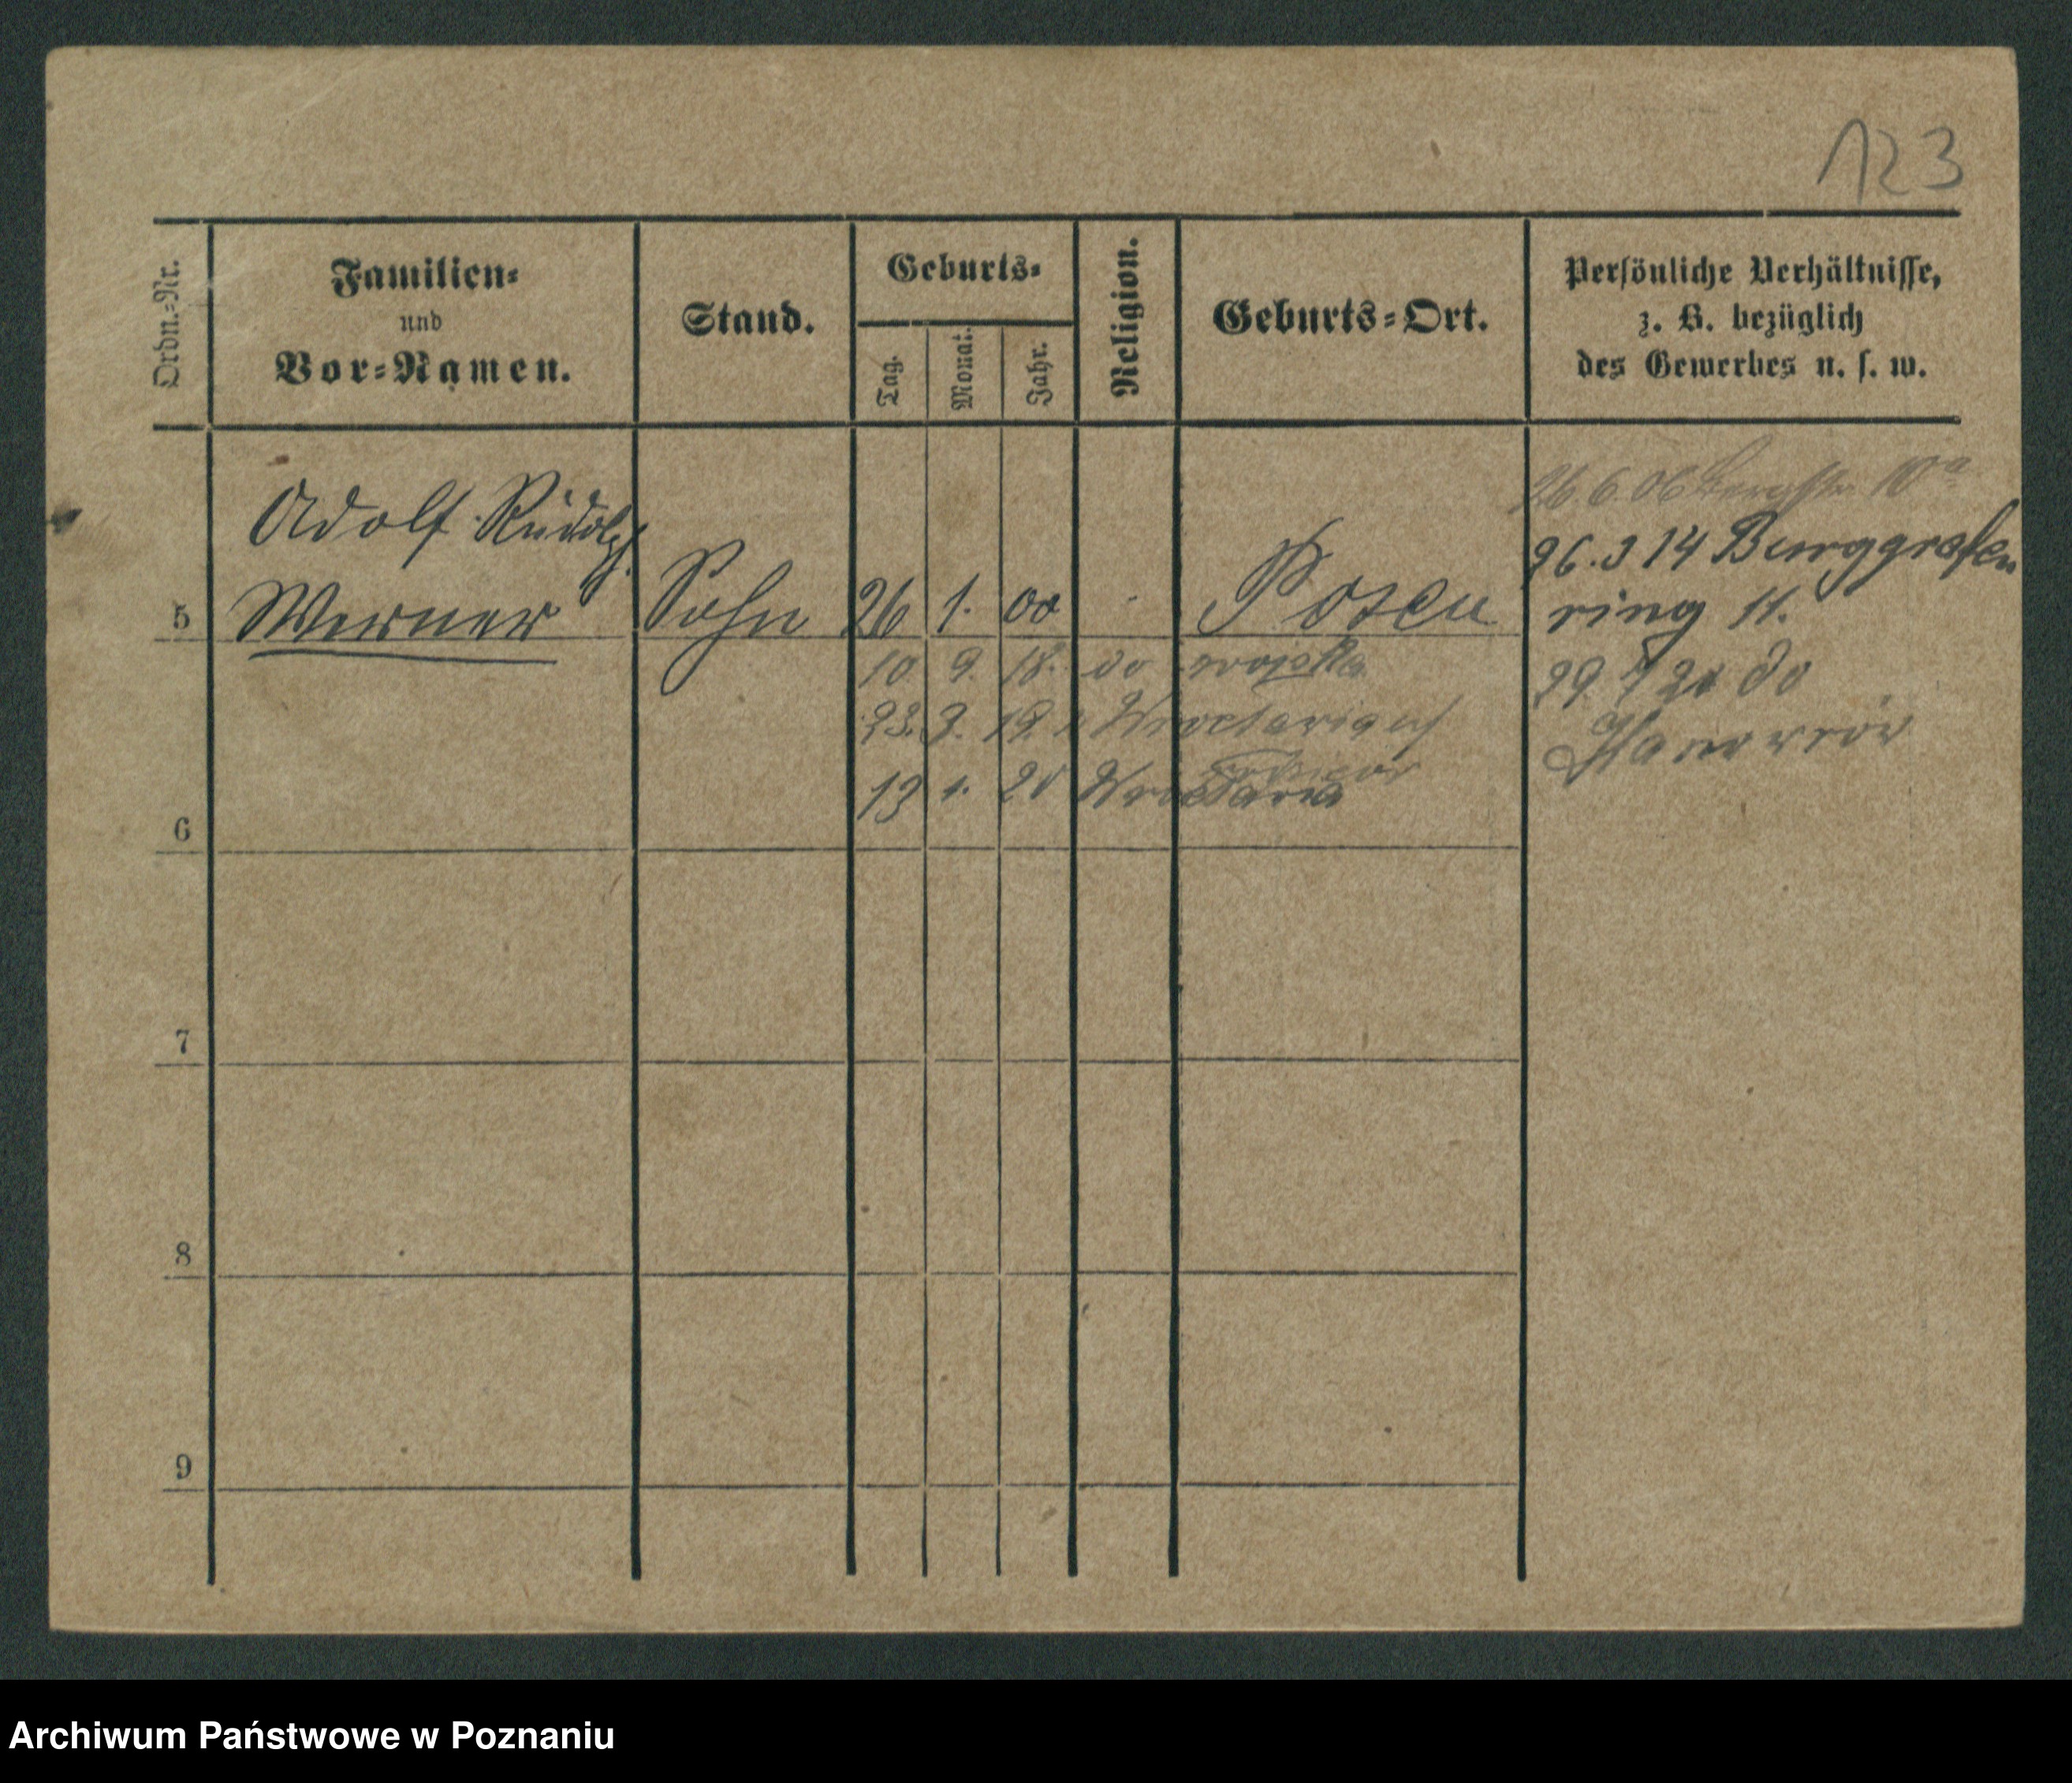 123
Ordn.-Nr.
Familien-
und
Vor-Namen.
Stand.
Geburts-
Tag.
Monat.
Jahr.
Religion.
Geburts-Ort.
Persönliche Verhältnisse,
z. B. bezüglich
des Gewerbes u. s. w.
Adolf Rudolf
5 Werner Sohn 26 1. 00 Posen
10 9. 18. do
23. 3. 19.
13 1. 20
26.6.06 10a
26.3 14 Burggrafen
ring 11.
29. 7 21 do
Hanower
6
7
8
9
Archiwum Państwowe w Poznaniu